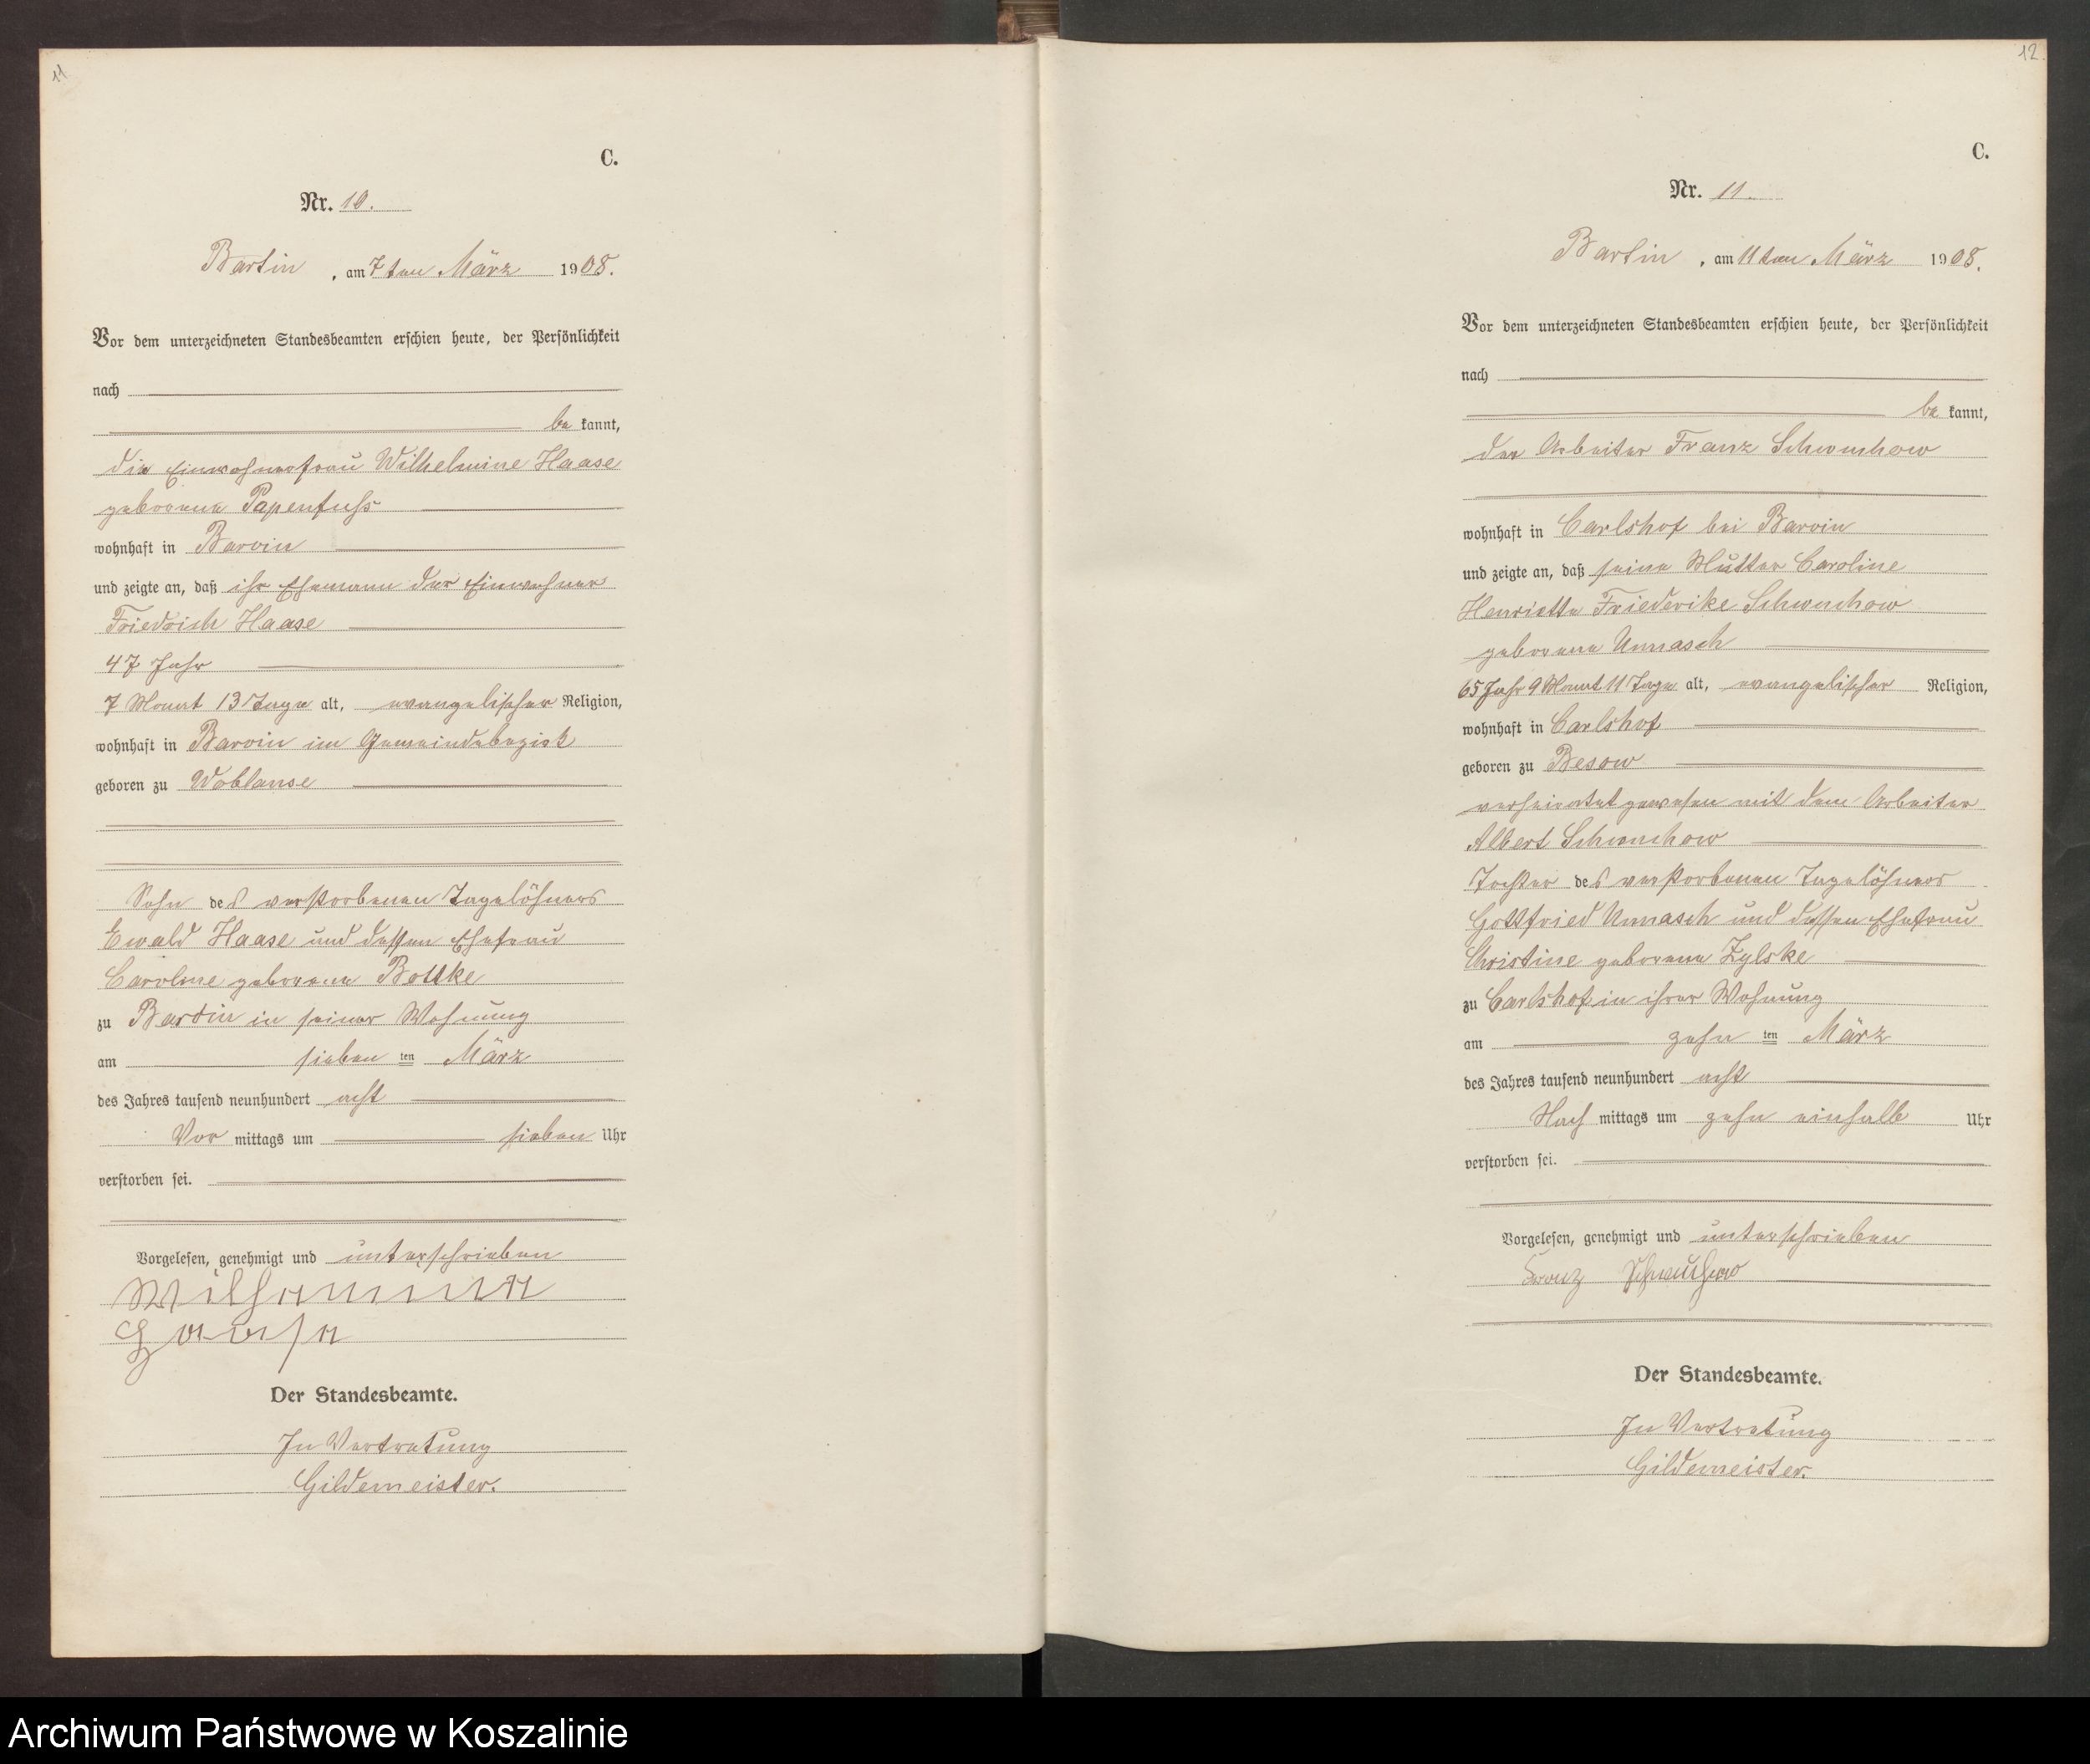 11
C.
Nr. 10.
Bartin, am 7ten März 1908.
Vor dem unterzeichneten Standesbeamten erschien heute, der Persönlichkeit
nach
bekannt,
die Einwohnerfrau Wilhelmine Haase
geborene Papenfuss
wohnhaft in Barvin
und zeigte an, daß ihr Ehemann der Einwohner
Friedrich Haase
47 Jahr
7 Monat 13 Tage alt, evangelischer Religion,
wohnhaft in Barvin im Gemeindebezirk
geboren zu Woblanse
Sohn des verstorbenen Tagelöhners
Ewald Haase und dessen Ehefrau
Caroline geborene
zu Bartin in seiner Wohnung
am sieben ten März
des Jahres tausend neunhundert acht
Vor mittags um sieben Uhr
verstorben sei.
Vorgelesen, genehmigt und unterschrieben
Wilhemine
Haase
Der Standesbeamte.
In Vertretung
Gildemeister.
12.
C.
Nr. 11.
Bartin, am 11ten März 1908.
Vor dem unterzeichneten Standesbeamten erschien heute, der Persönlichkeit
nach
bekannt,
der Arbeiter Franz Schwuchow
wohnhaft in Carlshof bei Barvin
und zeigte an, daß seine Mutter Caroline
Henriette Friederike Schwuchow
geborene Unnasch
65 Jahr 9 Monat 11 Tage alt, evangelischer Religion,
wohnhaft in Carlshof
geboren zu Besow
verheiratet gewesen mit dem Arbeiter
Albert Schwuchow
Tochter des verstorbenen Tagelöhners
Gottfried Unnasch und dessen Ehefrau
Christine geborene Zylske
zu Carlshof in ihrer Wohnung
am zehn ten März
des Jahres tausend neunhundert acht
Nach mittags um zehn einhalb Uhr
verstorben sei.
Vorgelesen, genehmigt und unterschrieben
Franz Schwuchow
Der Standesbeamte.
In Vertretung
Gildemeister.
Archiwum Państwowe w Koszalinie